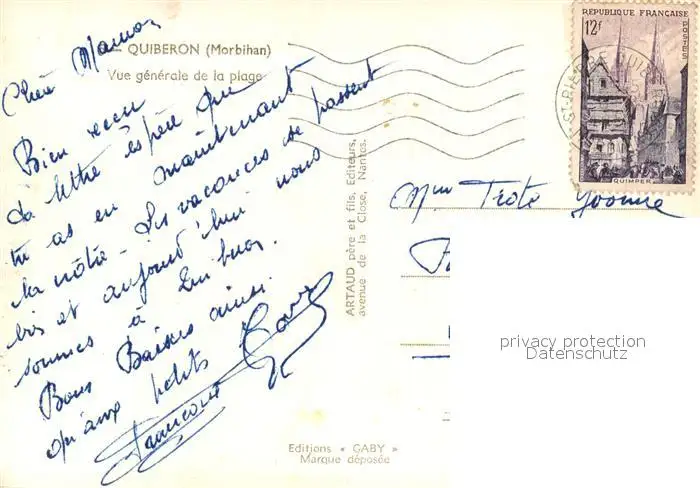 QUIBERON (Morbihan)
Vue générale de la plage
Chère Maman
Bien reçu
ta lettre espère que
tu as en maintenant
la nôtre. Les vacances se passent
bien et aujourd'hui nous
sommes à Quiberon.
Bons Baisers ainsi
qu'aux petits
Françoise
ARTAUD père et fils, Editeurs,
avenue de la Close, Nantes.
Editions « GABY »
Marque déposée
REPUBLIQUE FRANÇAISE
12f
POSTES
QUIMPER
ST-PIERRE-QUIB
Mme Troté Yvonne
privacy protection
Datenschutz